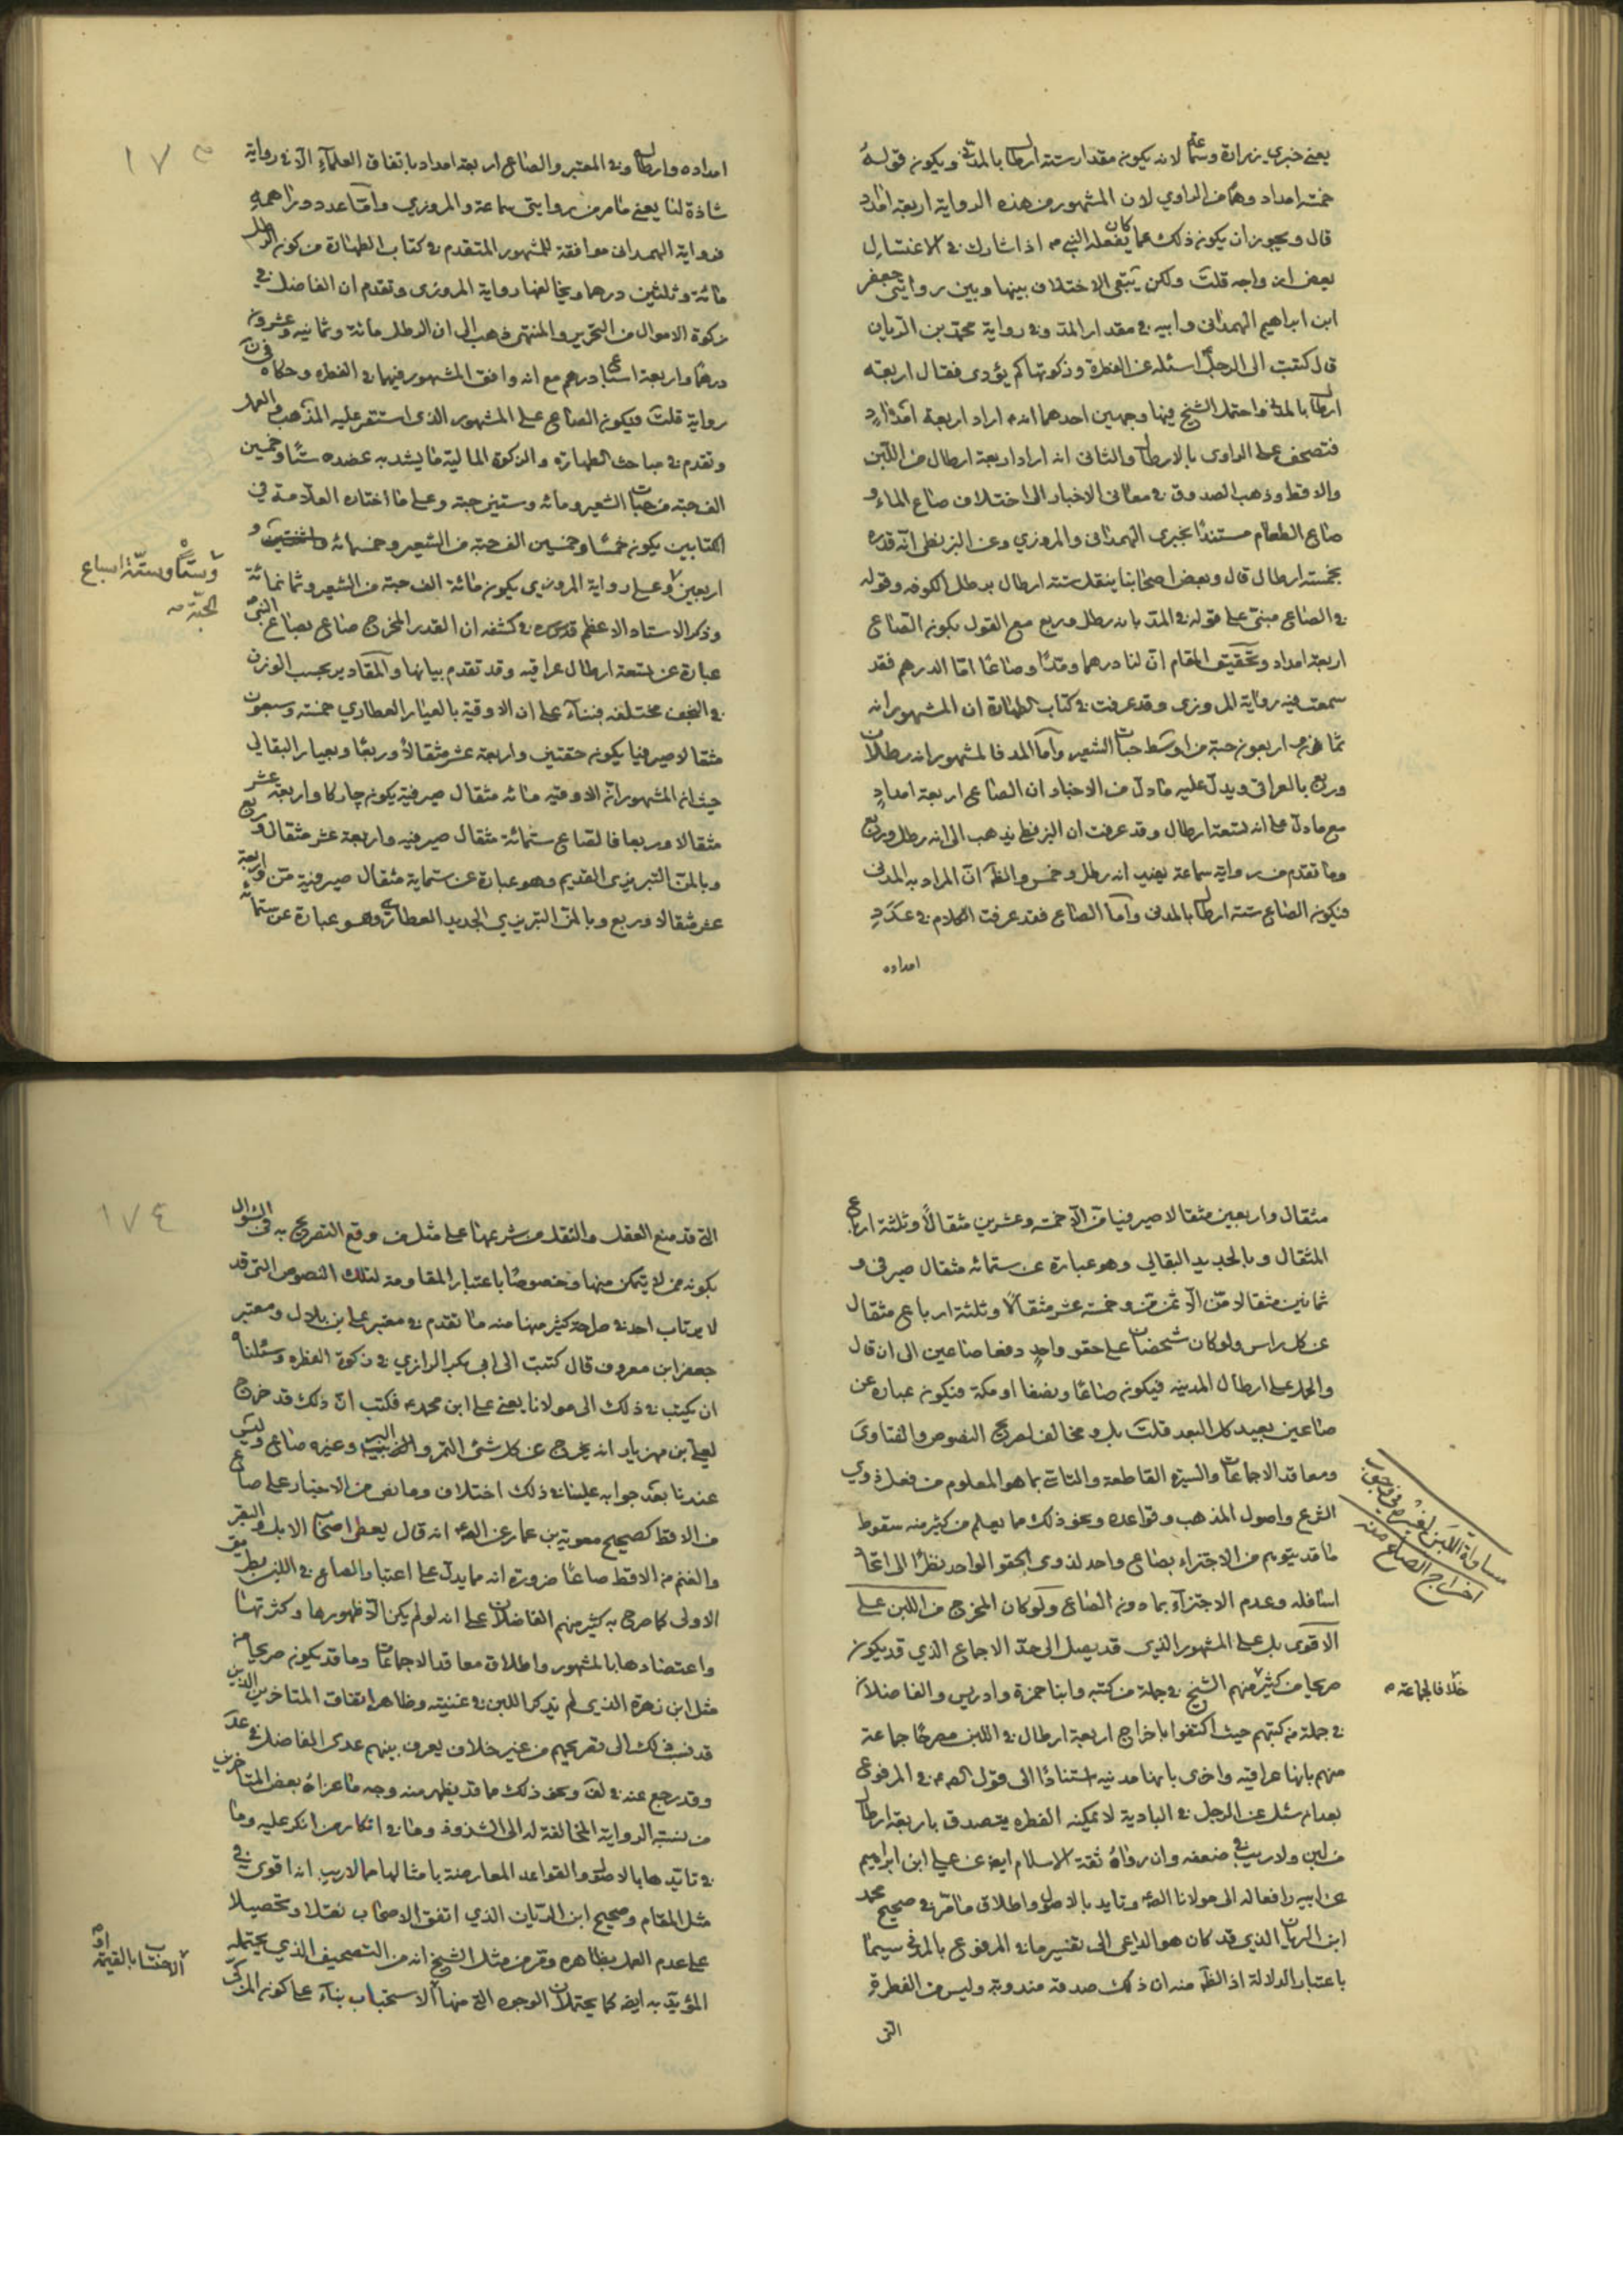 يعني خبري زرارة وسماعة لانه يكون مقدار ستة ارطال بالمدني ويكون قوله
خمسة امداد وهما من الراوي لان المشهور من هذه الرواية اربعة امداد
قال ويجوز ان يكون ذلك مما كان يفعله النبي ص اذا شارك في الاغتسال
بعض ازواجه قلت ولكن يبقى الاختلاف بينها وبين روايتي جعفر
ابن ابراهيم الهمداني وابيه في مقدار المد وفي رواية محمد بن الريان
قال كتبت الى الرجل اسئله عن الفطرة وزكوتها كم يؤدى فقال اربعة
ارطال بالمدني واحتمل الشيخ فيها وجهين احدهما انه اراد اربعة امداد
فتصحف على الراوي بالارطال والثاني انه اراد اربعة ارطال من اللبن
والاقط وذهب الصدوق في معاني الاخبار الى اختلاف صاع الماء و
صاع الطعام مستندا بخبري الهمداني والمروزي وعن البزنطي انه قدره
بخمسة ارطال قال وبعض اصحابنا ينقل ستة ارطال برطل الكوفه وقوله
في الصاع مبني على قوله في المد بانه رطل وربع مع القول بكون الصاع
اربعة امداد وتحقيق المقام ان لنا درهما ومدا وصاعا اما الدرهم فقد
سمعت فيه رواية المروزي وقد عرفت في كتاب الطهارة ان المشهور انه
ثمان واربعون حبة من اوسط حبات الشعير واما المد فالمشهور انه رطلان
وربع بالعراقي ويدل عليه ما دل من الاخبار ان الصاع اربعة امداد
مع ما دل على انه تسعة ارطال وقد عرفت ان البزنطي يذهب الى انه رطل وربع
وما تقدم من رواية سماعة يعني انه رطل وخمس والظ ان المراد به المدني
فيكون الصاع ستة ارطال بالمدني واما الصاع فقد عرفت الكلام في عدد
امداده
١٧٣
امداده وارطاله وفي المعتبر والصاع اربعة امداد باتفاق العلماء الا في رواية
شاذة لنا يعني ما مر من روايتي سماعة والمروزي واما عدد دراهمه
فرواية الهمداني موافقة للمشهور المتقدم في كتاب الطهارة من كون الرطل
مائة وثلثين درهما ويخالفها رواية المروزي وتقدم ان الفاضل في
زكوة الاموال من التحرير والمنتهى ذهب الى ان الرطل مائة وثمانية وعشرون
درهما واربعة اسباع درهم مع انه وافق المشهور فيهما في الفطرة وحكاه في ن
رواية قلت فيكون الصاع على المشهور الذي استقر عليه المذهب والعمل
وتقدم في مباحث الطهارة والزكوة المالية ما يشد به عضده ستا وخمسين
الف حبة من حبات الشعير ومائه وستين حبة وعلى ما اختاره العلامة في
الكتابين يكون خمسا وخمسين الف حبة من الشعير وخمسمائه و
اربعين وعلى رواية المروزي يكون مائة الف حبة من الشعير وثمانمائة
وستا وستة اسباع
الحبة ص
وذكر الاستاد الاعظم قدس سره في كشفه ان القدر المخرج صاع بصاع النبي ص
عبارة عن تسعة ارطال عراقيه وقد تقدم بيانها والمقادير بحسب الوزن
في النجف مختلفه فبناء على ان الاوقية بالعيار العطاري خمسة وسبعون
مثقالا صيرفيا يكون حقتين واربعة عشر مثقالا وربعا وبعيار البقالي
حيث ان المشهور ان الاوقيه مائه مثقال صيرفية يكون چاركا واربعة عشر
مثقالا وربعا فالصاع ستمائة مثقال صيرفيه واربعة عشر مثقالا وربع
وبالمن التبريزي القديم وهو عبارة عن ستماية مثقال صيرفية من واربعة
عشر مثقالا وربع وبالمن التبريزي الجديد العطاري وهو عبارة عن ستمائه
مثقال واربعين مثقالا صيرفيا من الا خمسة وعشرين مثقالا وثلثة ارباع
المثقال وبالجديد البقالي وهو عبارة عن ستمائه مثقال صيرفي و
ثمانين مثقالا من الا ثمن من وخمسة عشر مثقالا وثلثة ارباع مثقال
عن كل راس ولو كان شخصان على حقو واحد دفعا صاعين الى ان قال
والحمل على ارطال المدينه فيكون صاعا ونصفا او مكة فيكون عبارة عن
صاعين بعيد كل البعد قلت بل ومخالف لصريح النصوص والفتاوى
ومعاقد الاجماعات والسيرة القاطعة والتاسي بما هو المعلوم من فعل ذوي
الشرع واصول المذهب وقواعده ونحو ذلك مما يعلم من كثير منه سقوط
ما قد يتوهم من الاجتزاء بصاع واحد لذوي الحقو الواحد نظرا الى اتحاد
مساواة اللبن لغيره في وجوب
اخراج الصاع منه
اسافله وعدم الاجتزاء بما دون الصاع ولو كان المخرج من اللبن على
الاقوى بل على المشهور الذي قد يصل الى حد الاجماع الذي قد يكون
صريحا من كثير منهم الشيخ في جملة من كتبه وابنا حمزة وادريس والفاضلان
خلافا لجماعة ص
في جملة من كتبهم حيث اكتفوا باخراج اربعة ارطال في اللبن مصرحا جماعة
منهم بانها عراقيه واخرى بانها مدنيه استنادا الى قول الص ع في المرفوع
بعد ان سئل عن الرجل في البادية لا يمكنه الفطره يتصدق باربعة ارطال
من لبن ولا ريب في ضعفه وان رواه ثقة الاسلام ايض عن علي ابن ابراهيم
عن ابيه رافعا له الى مولانا الص ع وتايد بالاصل واطلاق ما مر في صحيح محمد
ابن الريان الذي قد كان هو الداعي الى تفسير ما في المرفوع بالمدني سيما
باعتبار الدلالة اذ الظ منه ان ذلك صدقة مندوبة وليس من الفطرة
التي
١٧٤
التي قد منع العقل والنقل من شرعيتها على مثل من وقع التصريح به في السؤال
بكونه ممن لا يتمكن منها وخصوصا باعتبار المقاومة لتلك النصوص التي قد
لا يرتاب احد في صراحة كثير منها منه ما تقدم في معتبر علي بن بلال ومعتبر
جعفر ابن معروف قال كتبت الى ابي بكر الرازي في زكوة الفطره وسئلناه
ان يكتب في ذلك الى مولانا يعني علي ابن محمد ع فكتب ان ذلك قد خرج
لعلي بن مهزيار انه يخرج عن كل شئ التمر والبر وغيره صاع وليس
عندنا بعد جوابه علينا في ذلك اختلاف وما نص من الاخبار على صاع
من الاقط كصحيح معوية بن عمار عن الص ع انه قال يعطي اصحاب الابل والبقر
والغنم من الاقط صاعا ضرورة انه مما يدل على اعتبار الصاع في اللبن بطريق
الاولى كما صرح به كثير منهم الفاضلان على انه لو لم يكن الا ظهورها وكثرتها
واعتضادها بالمشهور واطلاق معاقد الاجماعات وما قد يكون صريحا من
مثل ابن زهرة الذي لم يذكر اللبن في غنيته وظاهر اتفاق المتاخرين الذين
قد نسب ذلك الى تصريحهم من غير خلاف يعرف بينهم عدى الفاضل في عد
وقد رجع عنه في لف ونحو ذلك مما قد يظهر منه وجه ما عزاه بعض المتاخرين
من نسبة الرواية المخالفة له الى الشذوذ وما في انكار من انكر عليه وما
في تاييدها بالاصل والقواعد المعارضة بامثالها مما لا ريب انه اقوى في
مثل المقام وصحيح ابن الريان الذي اتفق الاصحاب نقلا وتحصيلا
على عدم العمل بظاهره وقرض مثل الشيخ انه من التصحيف الذي يحتمله
المؤيد به ايض كما يحتملان الوجوه التي منها الاستحباب بناء على كون المزكى
او الاحتساب بالقيمة